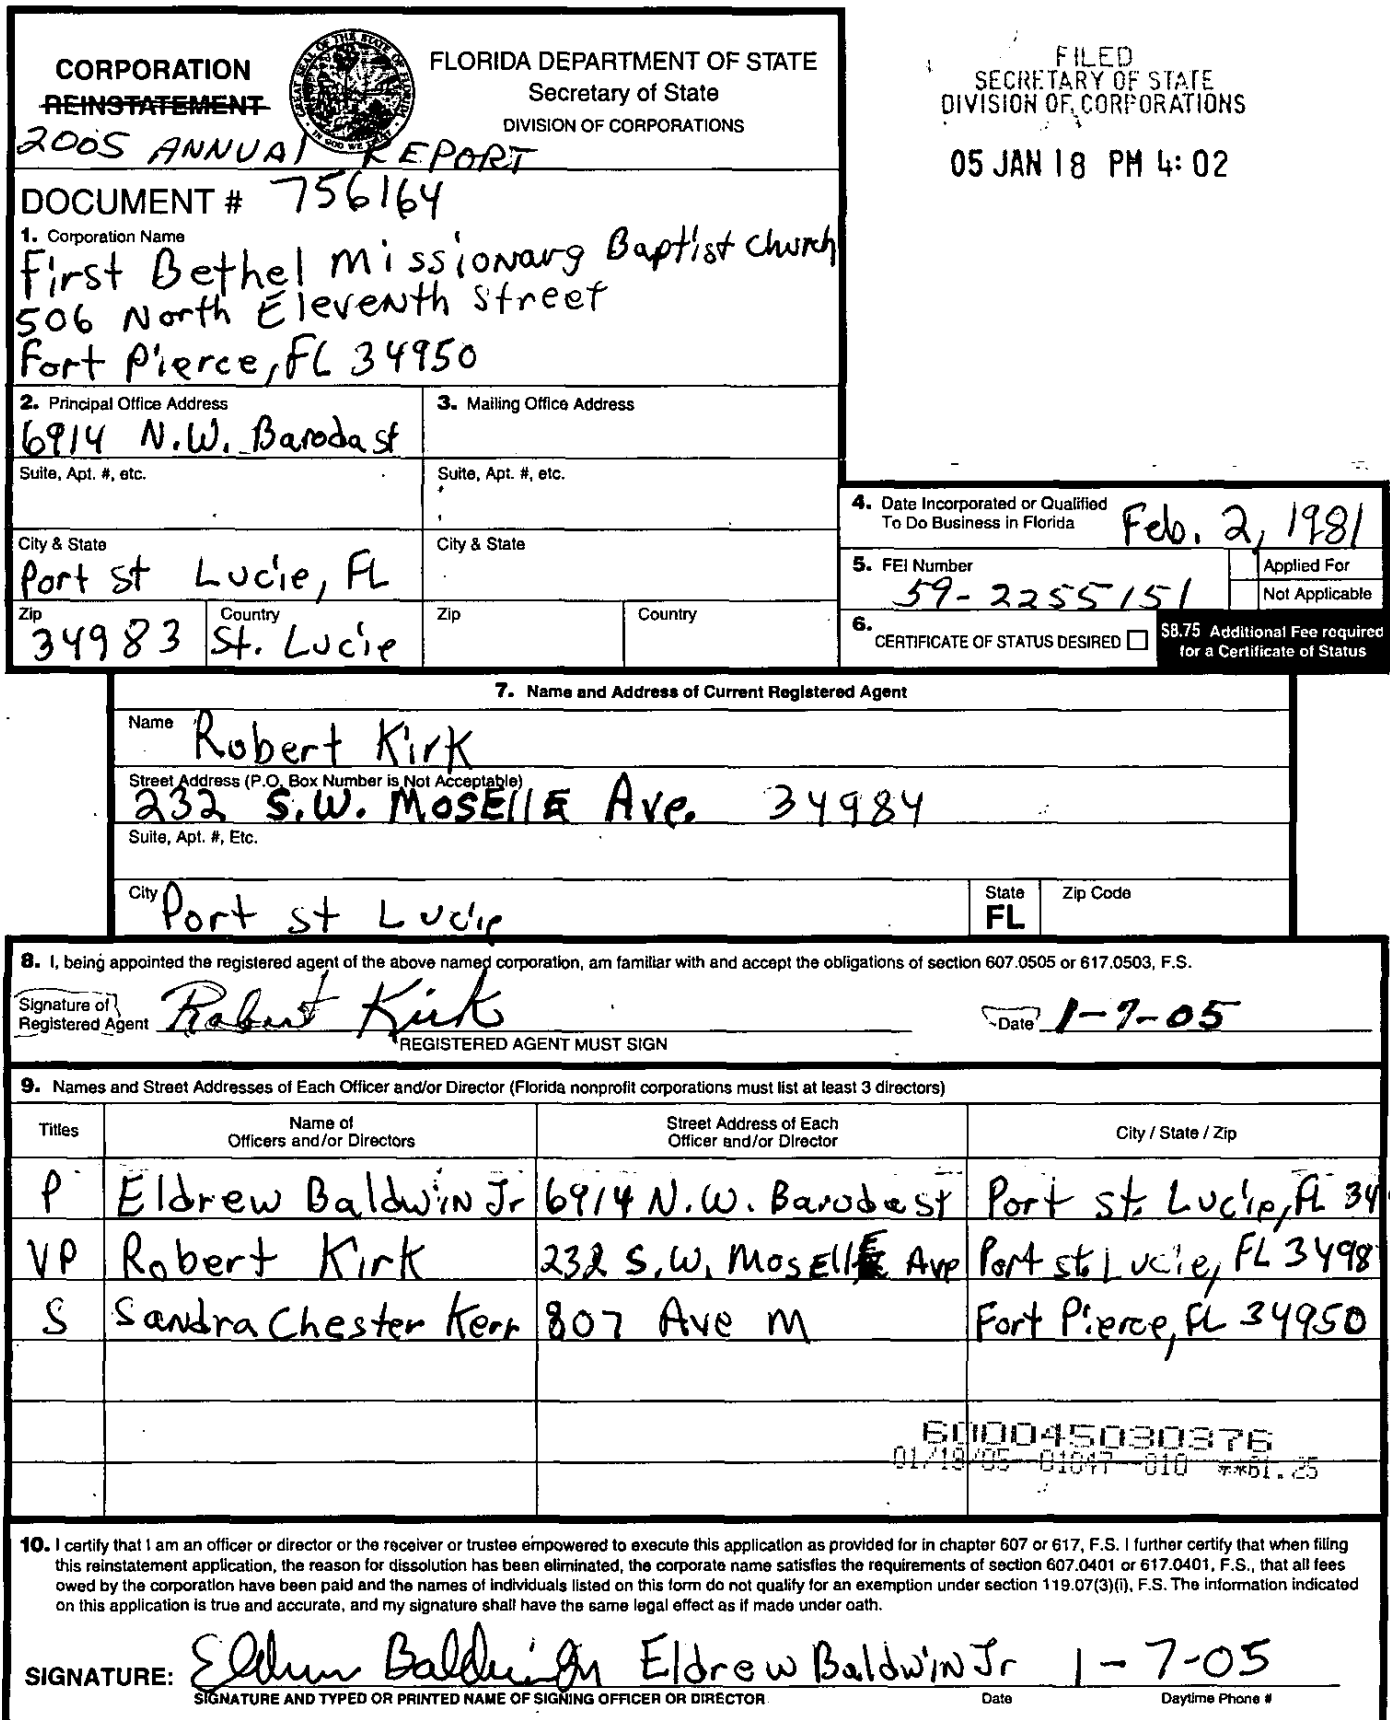 CORPORATION
REINSTATEMENT
2005 ANNUAL REPORT
FLORIDA DEPARTMENT OF STATE
Secretary of State
DIVISION OF CORPORATIONS
FILED
SECRETARY OF STATE
DIVISION OF CORPORATIONS
05 JAN 18 PM 4:02
DOCUMENT # 756164
1. Corporation Name
First Bethel Missionary Baptist Church
506 North Eleventh Street
Fort Pierce, FL 34950
2. Principal Office Address
6914 N.W. Baroda st
3. Mailing Office Address
Suite, Apt. #, etc.
Suite, Apt. #, etc.
City & State
Port st Lucie, FL
City & State
Zip
34983
Country
St. Lucie
Zip
Country
4. Date Incorporated or Qualified
To Do Business in Florida
Feb. 2, 1981
5. FEI Number
59-2255151
Applied For
Not Applicable
6. CERTIFICATE OF STATUS DESIRED
$8.75 Additional Fee required
for a Certificate of Status
7. Name and Address of Current Registered Agent
Name Robert Kirk
Street Address (P.O. Box Number is Not Acceptable)
232 S.W. MOSEllE Ave. 34984
Suite, Apt. #, Etc.
City Port st Lucie
State
FL
Zip Code
8. I, being appointed the registered agent of the above named corporation, am familiar with and accept the obligations of section 607.0505 or 617.0503, F.S.
Signature of
Registered Agent Robert Kirk
REGISTERED AGENT MUST SIGN
Date 1-7-05
9. Names and Street Addresses of Each Officer and/or Director (Florida nonprofit corporations must list at least 3 directors)
Titles
Name of
Officers and/or Directors
Street Address of Each
Officer and/or Director
City / State / Zip
P Eldrew Baldwin Jr 6914 N.W. Baroda st Port st. Lucie, FL 34
VP Robert Kirk 232 S.W. MOSEllE Ave Port st. Lucie, FL 3498
S Sandra Chester Kerr 807 Ave M Fort Pierce, FL 34950
600045030376
01/19/05--01047--010 **61.25
10. I certify that I am an officer or director or the receiver or trustee empowered to execute this application as provided for in chapter 607 or 617, F.S. I further certify that when filing
this reinstatement application, the reason for dissolution has been eliminated, the corporate name satisfies the requirements of section 607.0401 or 617.0401, F.S., that all fees
owed by the corporation have been paid and the names of individuals listed on this form do not qualify for an exemption under section 119.07(3)(i), F.S. The information indicated
on this application is true and accurate, and my signature shall have the same legal effect as if made under oath.
SIGNATURE: Eldrew Baldwin Jr Eldrew Baldwin Jr 1-7-05
SIGNATURE AND TYPED OR PRINTED NAME OF SIGNING OFFICER OR DIRECTOR
Date
Daytime Phone #